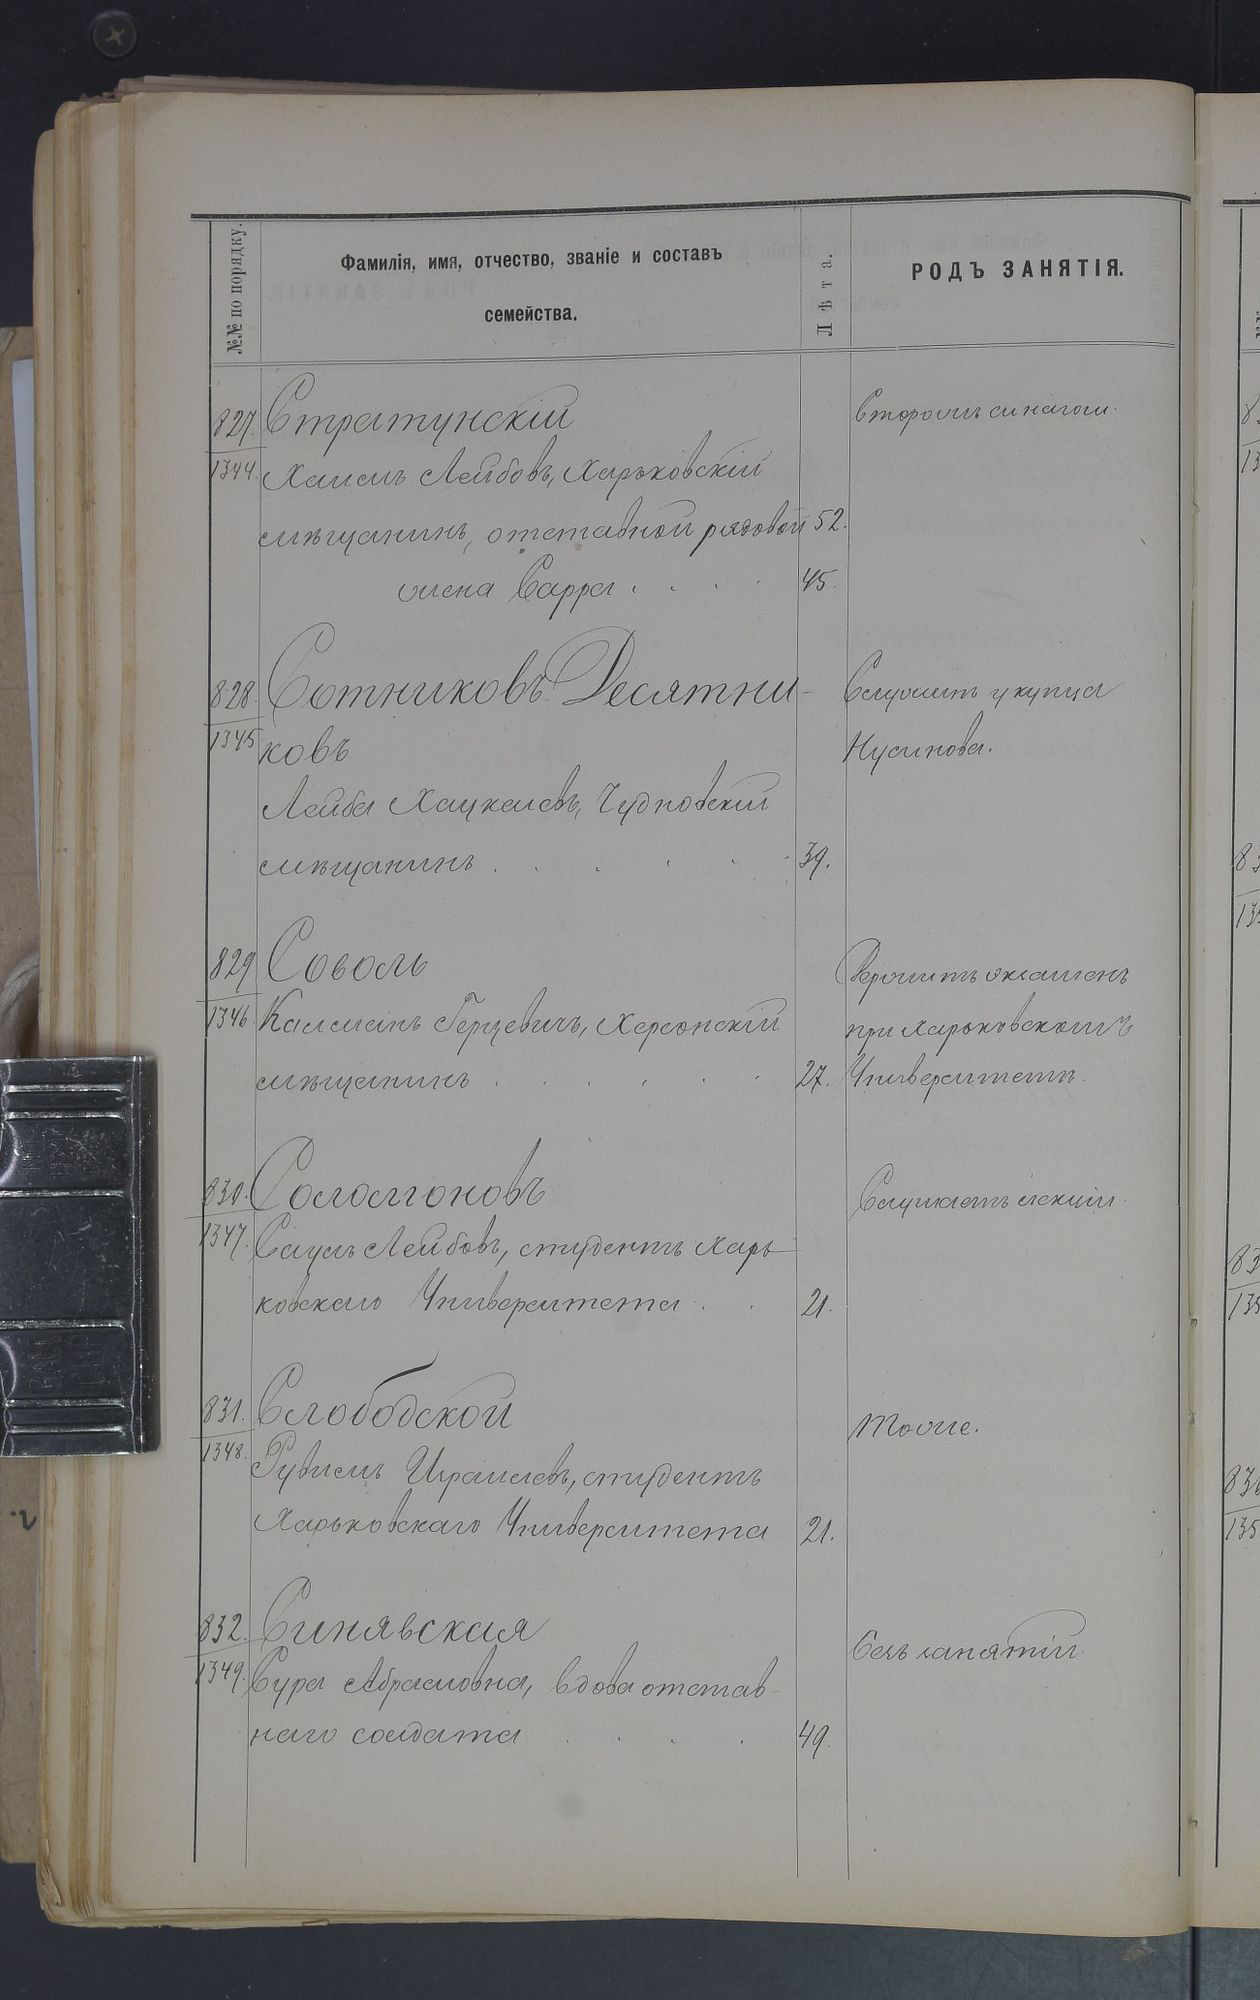 №№ по порядку.
Фамилія, имя, отчество, званіе и составъ
семейства.
Лѣта.
РОДЪ ЗАНЯТІЯ.
827. Стратунскій
Сторожъ синагоги.
1344. Хаимъ Лейбовъ, Харьковскій
мѣщанинъ, отставной рядовой 52.
жена Сарра . . . . 45.
828. Сотниковъ-Десятни-
Служитъ у купца
1345 ковъ
Нусинова.
Лейба Хацкелевъ, Чудновскій
мѣщанинъ . . . . . 39.
829 Соболь
Держитъ экзаменъ
1346 Калманъ Герцевичъ, Херсонскій
при Харьковскомъ
мѣщанинъ . . . . . 27.
Университетѣ.
830. Соломоновъ
Слушаетъ лекціи.
1347. Сауль Лейбовъ, студентъ Харь-
ковскаго Университета . . 21.
831. Слободской
Тоже.
1348. Рувимъ Израилевъ, студентъ
Харьковскаго Университета 21.
832. Синявская
Безъ занятій.
1349. Сура Абрамовна, вдова отстав-
наго солдата . . . . 49.